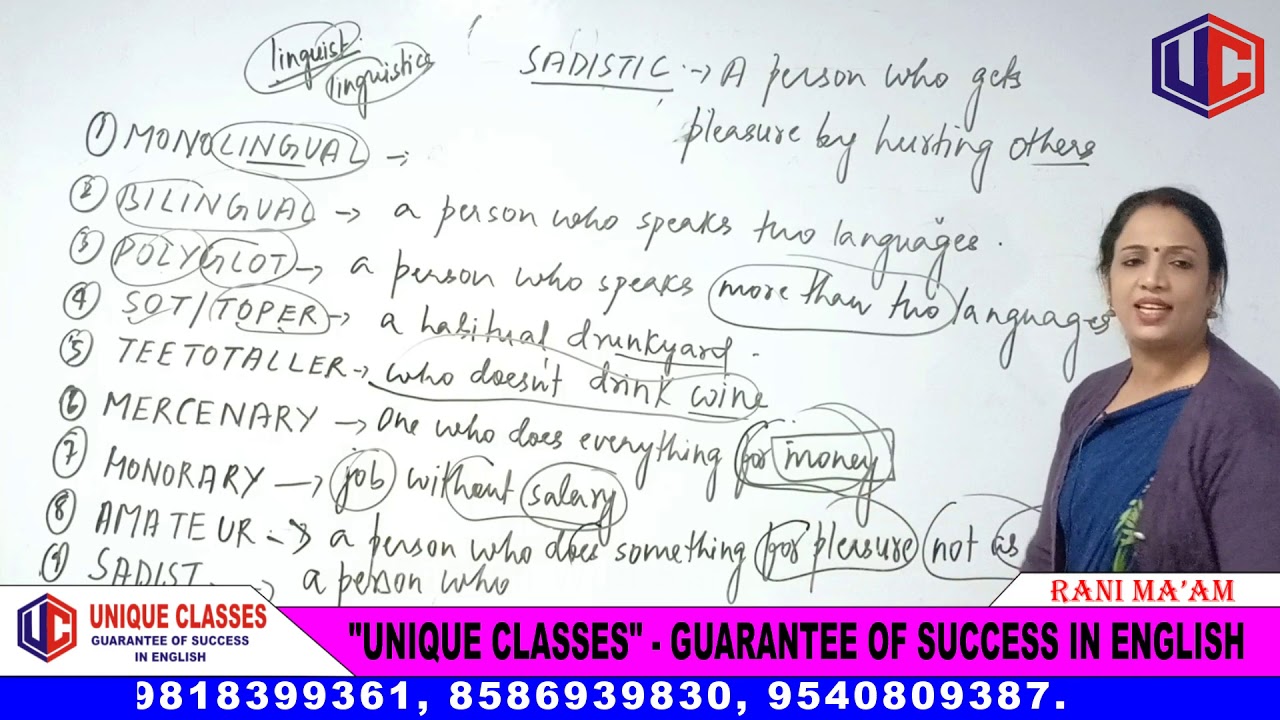 linguist.
linguistics
SADISTIC :-> A person who gets
pleasure by hurting others
① MONOLINGUAL -:
② BILINGUAL -> a person who speaks two languages.
③ POLYGLOT -> a person who speaks more than two languages
④ SOT/TOPER -> a habitual drunkyard.
⑤ TEETOTALLER -> who doesn't drink wine
⑥ MERCENARY -> One who does everything for money
⑦ MONORARY -> job without salary
⑧ AMATEUR -> a person who does something for pleasure not as
⑨ SADIST a person who
UC
RANI MA'AM
UC UNIQUE CLASSES
GUARANTEE OF SUCCESS
IN ENGLISH
"UNIQUE CLASSES" - GUARANTEE OF SUCCESS IN ENGLISH
9818399361, 8586939830, 9540809387.